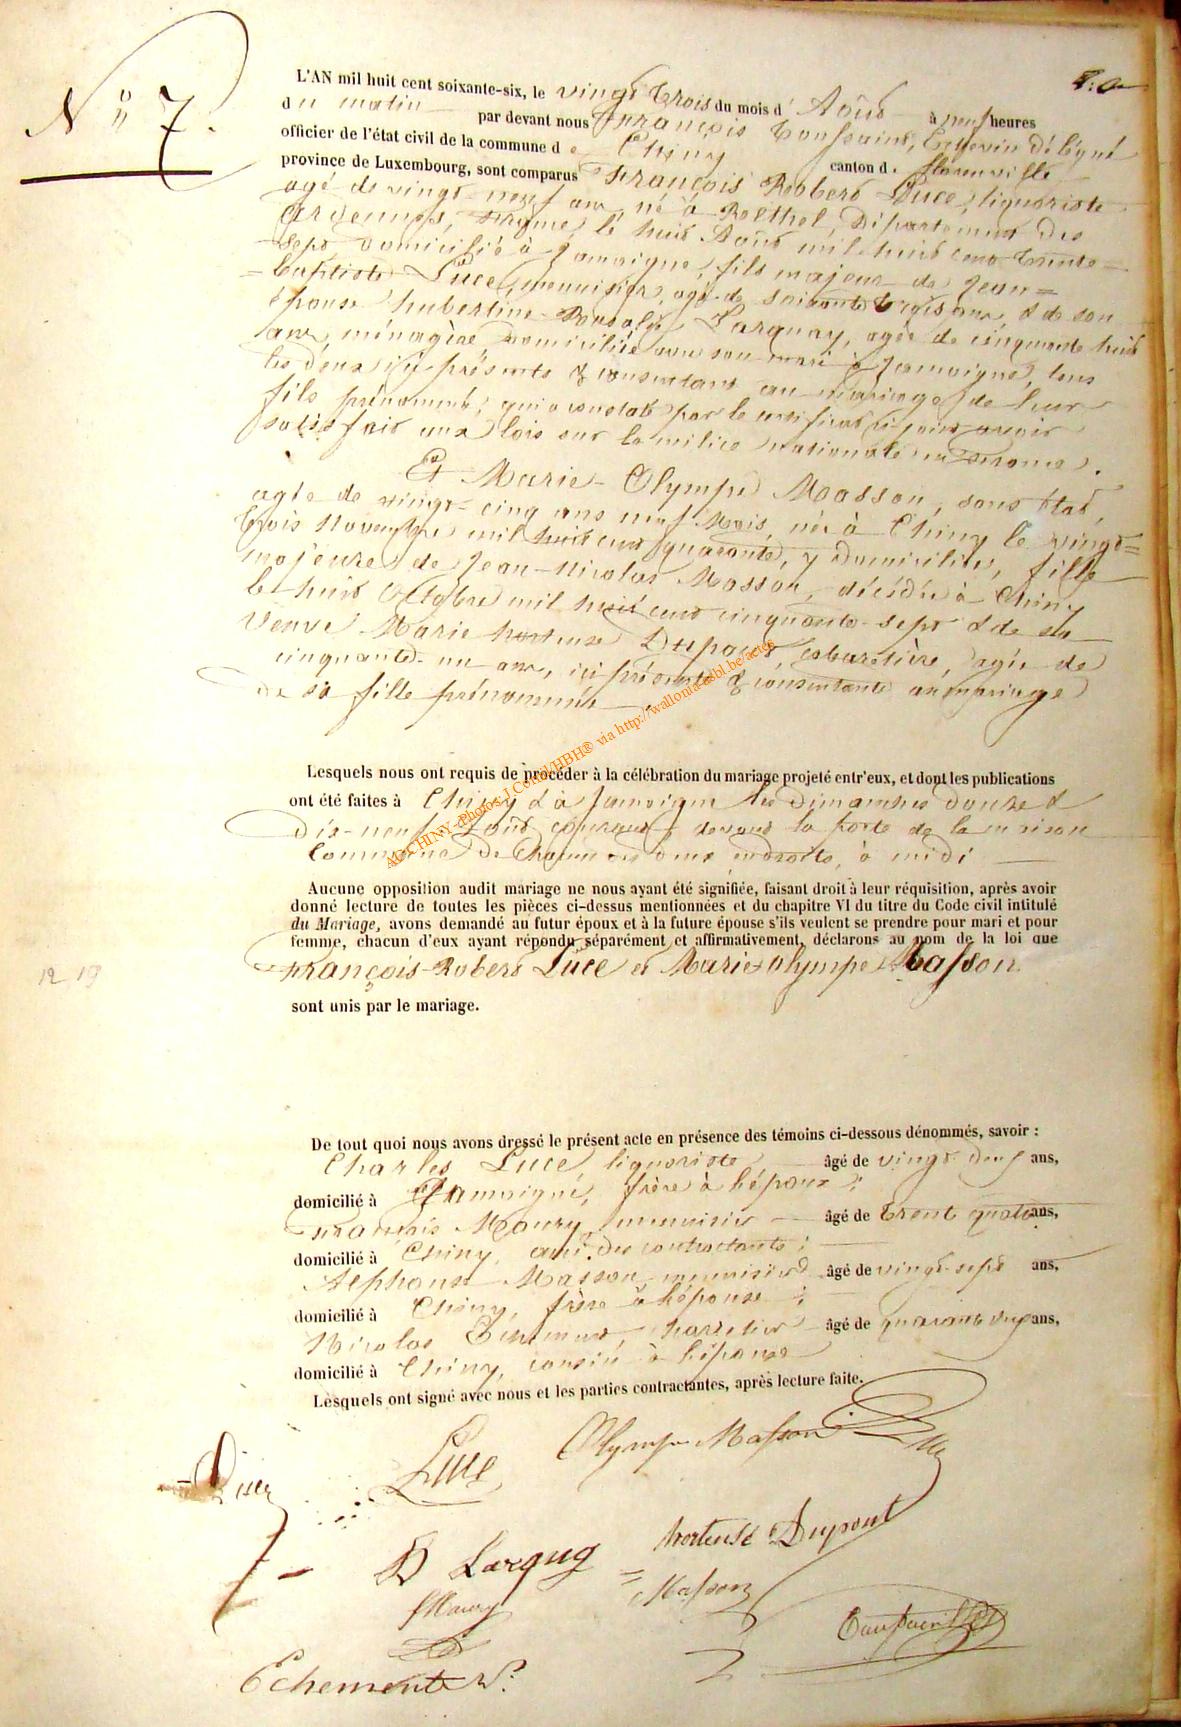 N° 7.
L'AN mil huit cent soixante-six, le vingt trois du mois d'Août à neuf heures
du matin par devant nous François Toussaint, Echevin délégué
officier de l'état civil de la commune de Chiny canton de florenville
province de Luxembourg, sont comparus François Robert Luce, liquoriste
agé de vingt-neuf ans, né à Rethel, Département des
Ardennes, france, le huit Août mil huit cent trente-
sept domicilié à Jamoigne, fils majeur de Jean=
=baptiste Luce, menuisier, agé de soixante trois ans & de son
épouse hubertine Larquay, agée de cinquante huit
ans, ménagère domiciliée avec son mari à Jamoigne, tous
les deux ici présents & consentant au mariage de leur
fils prénommé, qui a constaté par le certificat ci joint avoir
satisfait aux lois sur la milice nationale
Et Marie-Olympe Masson, sans état,
agée de vingt-cinq ans neuf Mois, née à Chiny le vingt=
trois Novembre mil huit cent quarante, y domiciliée, fille
majeure de Jean-Nicolas Masson, décédé à Chiny
le huit Octobre mil huit cent cinquante-sept & de sa
Veuve Marie hortense Dupont, cabaretière, agée de
cinquante-un ans, ici présente & consentante au mariage
de sa fille prénommée.
AC CHINY -Photos J.Cornil/HBH® via http://wallonia.asbl.be/actes
Lesquels nous ont requis de procéder à la célébration du mariage projeté entr'eux, et dont les publications
ont été faites à Chiny & à Jamoigne les dimanches douze &
dix-neuf Août courant devant la porte de la maison
Commune de Chacun des deux endroits, à midi
Aucune opposition audit mariage ne nous ayant été signifiée, faisant droit à leur réquisition, après avoir
donné lecture de toutes les pièces ci-dessus mentionnées et du chapitre VI du titre du Code civil intitulé
du Mariage, avons demandé au futur époux et à la future épouse s'ils veulent se prendre pour mari et pour
femme, chacun d'eux ayant répondu séparément et affirmativement, déclarons au nom de la loi que
François-Robert Luce et Marie-olympe Masson
12 19
sont unis par le mariage.
De tout quoi nous avons dressé le présent acte en présence des témoins ci-dessous dénommés, savoir :
Charles Luce liquoriste âgé de vingt deux ans,
domicilié à Jamoigne, frère à l'époux ;
François Maury menuisier âgé de trent quatre ans,
domicilié à Chiny, ami des contractants ;
Alphonse Masson menuisier âgé de vingt-sept ans,
domicilié à Chiny, frère à l'épouse ;
Nicolas Echement âgé de quarante ans,
domicilié à Chiny, cousin à l'épouse
Lesquels ont signé avec nous et les parties contractantes, après lecture faite.
Luce Olympe Masson Luce
Luce
H Larquy hortense Dupont
Masson
f Maury
Toussaint
Echement N.